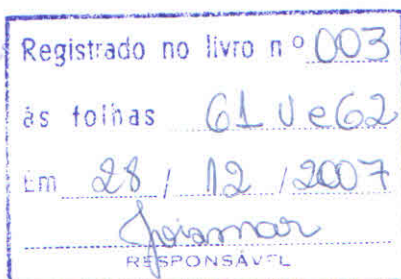 Registrado no livro nº 003
às folhas 61 V e 62
Em 28 / 12 / 2007
Joismar
RESPONSÁVEL